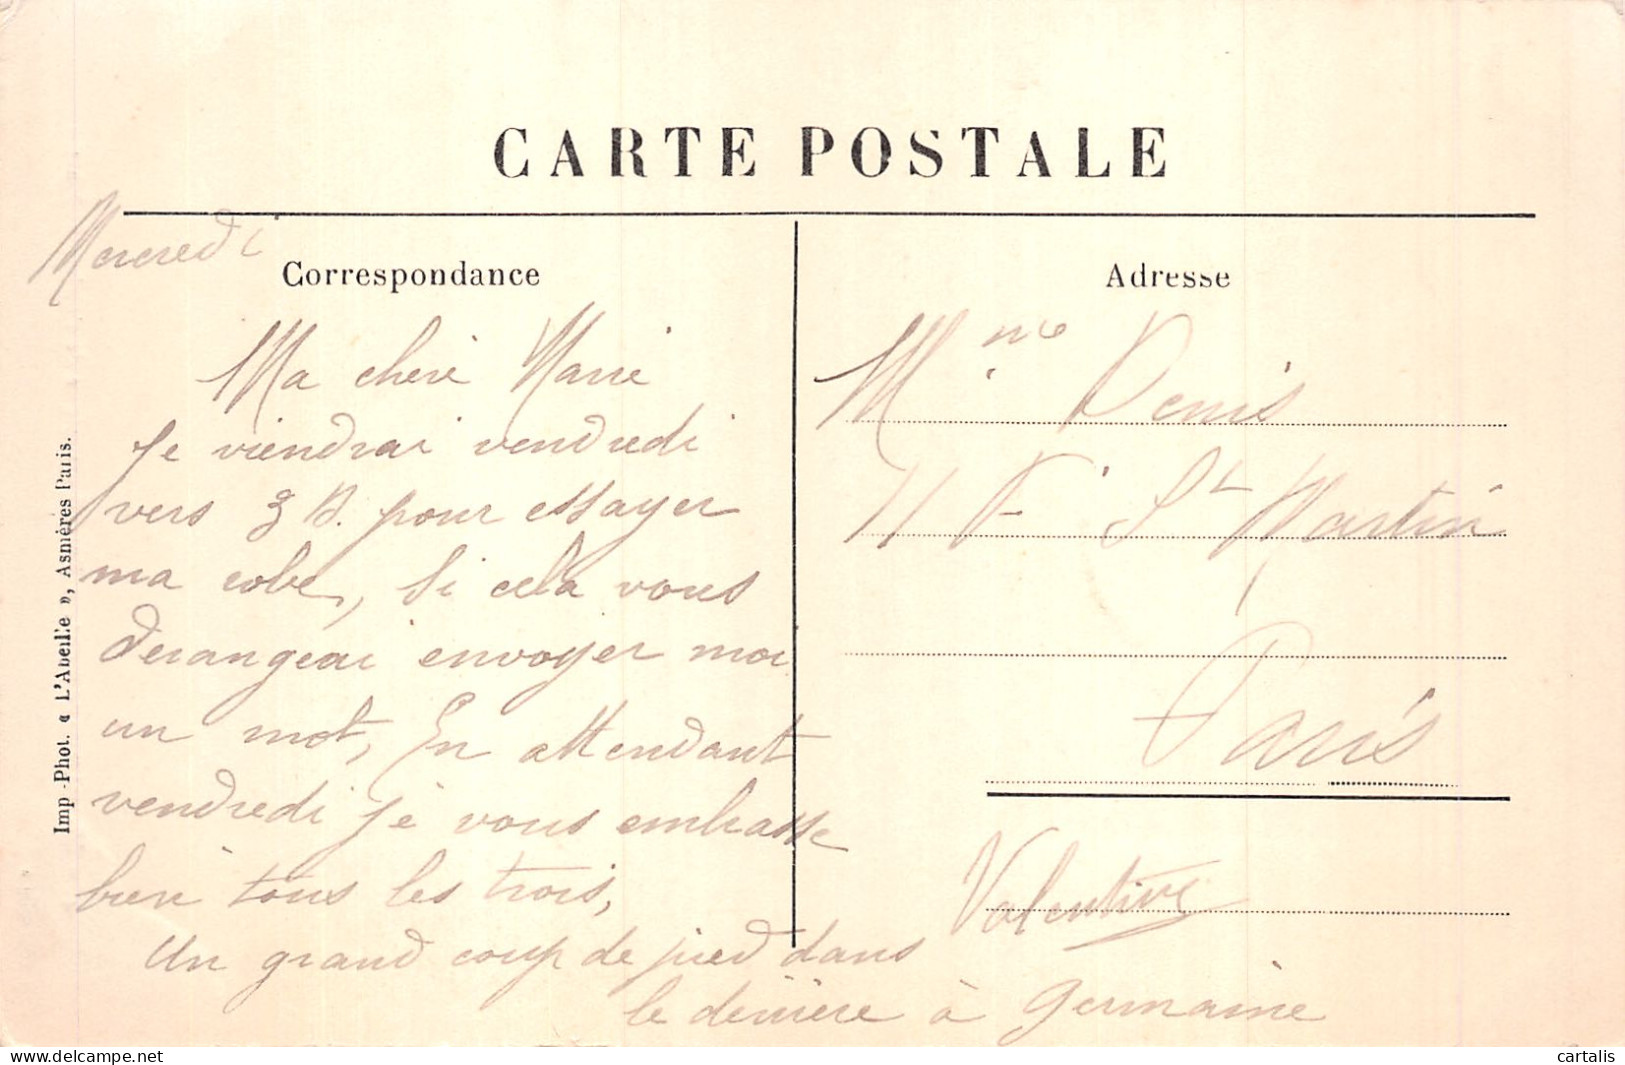 CARTE POSTALE
Mercredi
Correspondance
Ma chère Marie
Je viendrai vendredi
vers 3 h. pour essayer
ma robe, Si cela vous
derangeai envoyer moi
un mot, En attendant
vendredi je vous embrasse
bien tous les trois,
Un grand coup de pied dans
le derriere à Germaine
Valentine
Adresse
Mme Denis
11 F St Martin
Paris
Imp-Phot. « L'Abeille », Asnières Paris.
Delcampe.net
cartalis